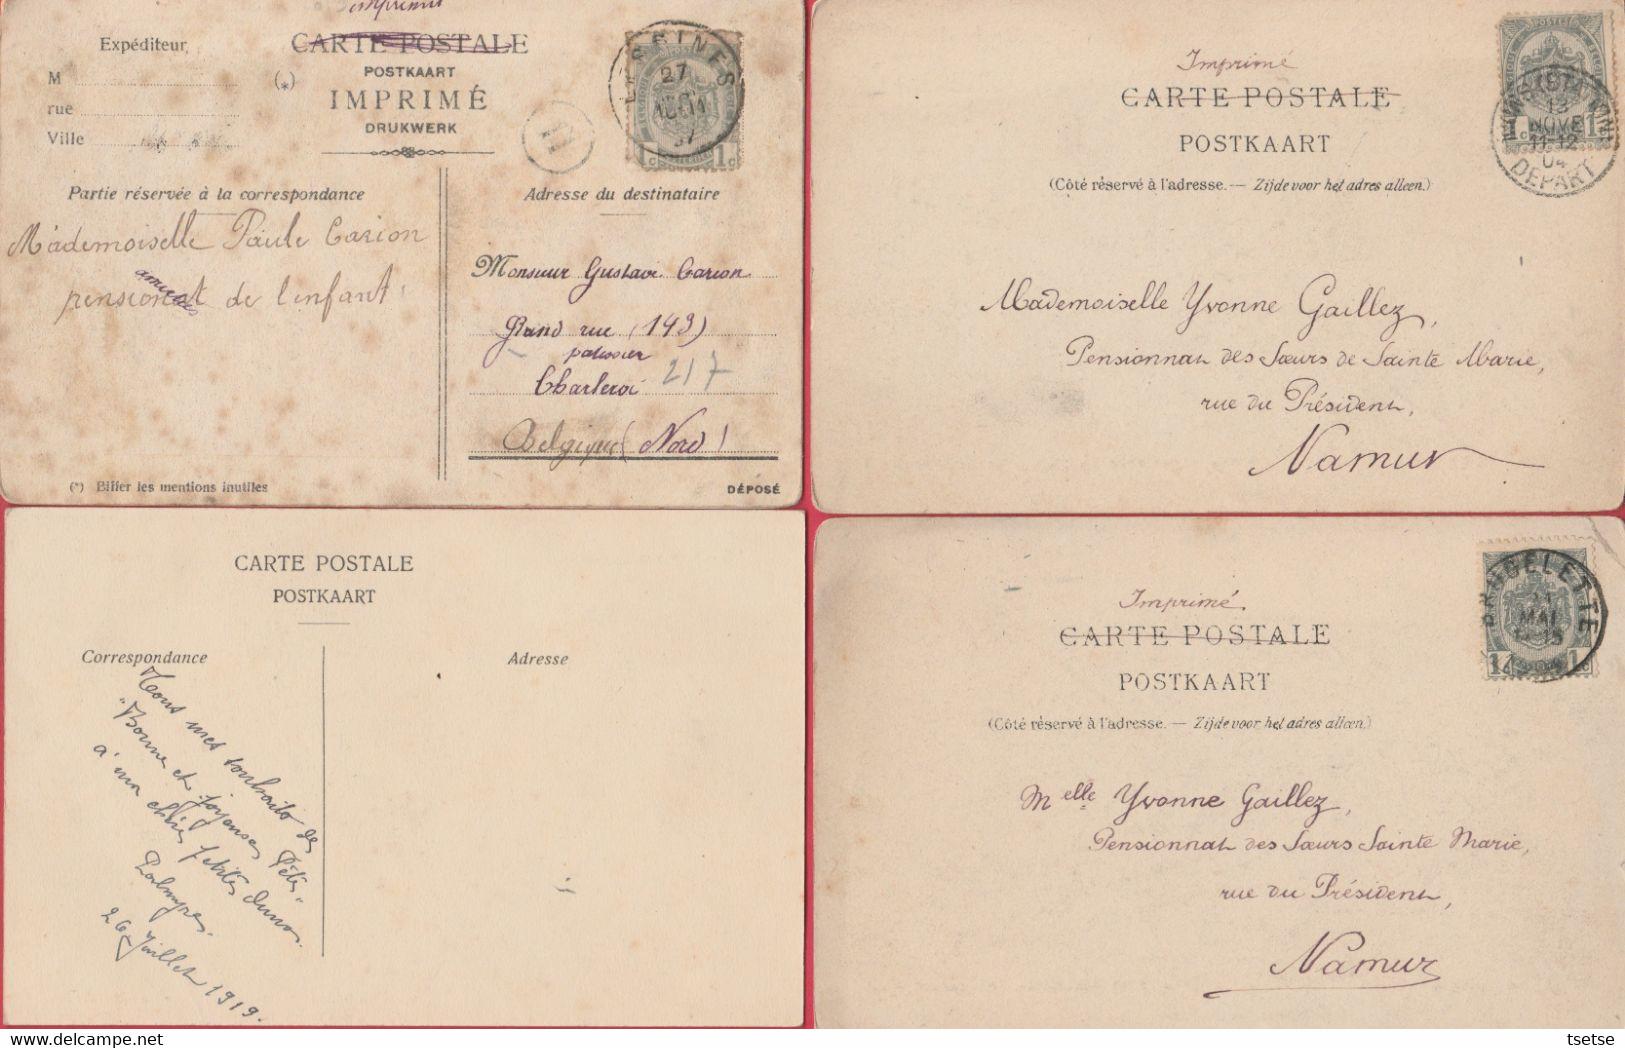 Imprimé
Expéditeur
CARTE POSTALE
M
(*)
POSTKAART
rue
IMPRIMÉ
Ville
DRUKWERK
Partie réservée à la correspondance
Adresse du destinataire
Mademoiselle Paule Carion
pensionat de l'enfant
Monsieur Gustave Carion
Grand rue (143)
patissier
Charleroi 217
Belgique (Nord)
(*) Biffer les mentions inutiles
DÉPOSÉ
27
1c 1c
Imprimé
CARTE POSTALE
POSTKAART
(Côté réservé à l'adresse. — Zijde voor het adres alleen.)
13
NOVE
11-12
04
DEPART
1c 1c
Mademoiselle Yvonne Gaillez,
Pensionnat des Sœurs de Sainte Marie,
rue du Président,
Namur
CARTE POSTALE
POSTKAART
Correspondance
Adresse
Tous mes souhaits de
"Bonne et joyeuse Fête"
à ma chère petite
26 Juillet 1919.
Imprimé
CARTE POSTALE
POSTKAART
(Côté réservé à l'adresse. — Zijde voor het adres alleen.)
BRUGELETTE
MAI
1c 1c
Melle Yvonne Gaillez,
Pensionnat des Sœurs Sainte Marie,
rue du Président,
Namur
tsetse